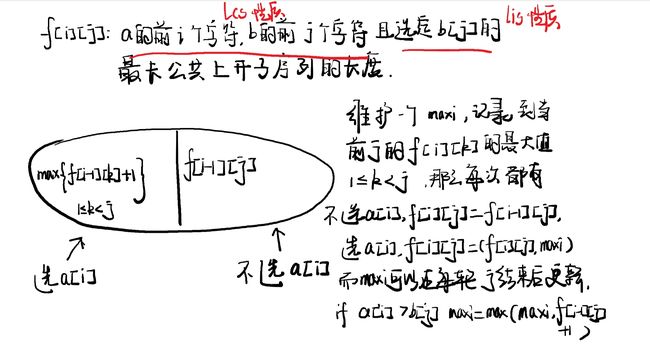 LCS性质
LIS性质
f[i][j]: a的前i个字符,b的前j个字符 且选定b[j]的
最长公共上升子序列的长度.
max{f[i-1][k]+1}
1≤k<j
f[i-1][j]
选a[i]
不选a[i]
维护一个maxi,记录到当
前j的f[i][k]的最大值
1≤k<j,那么每次都有
不选a[i],f[i][j]=f[i-1][j],
选a[i],f[i][j]=(f[i][j],maxi)
而maxi可以在每轮j结束后更新,
if a[i]>b[j] maxi=max(maxi,f[i-1][j]
+1)